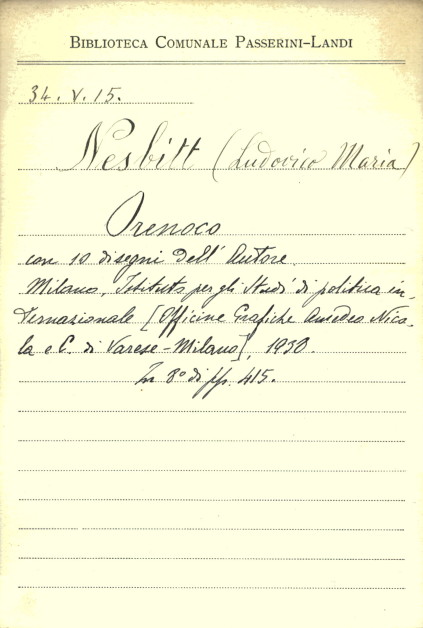 BIBLIOTECA COMUNALE PASSERINI-LANDI
34. V. 15.
Nesbitt (Ludovico Maria)
Orenoco
con 10 disegni dell' Autore.
Milano, Istituto per gli Studi di politica in-
ternazionale [Officine Grafiche Amedeo Nico-
la e C. di Varese-Milano],
In 8° di pp. 415.